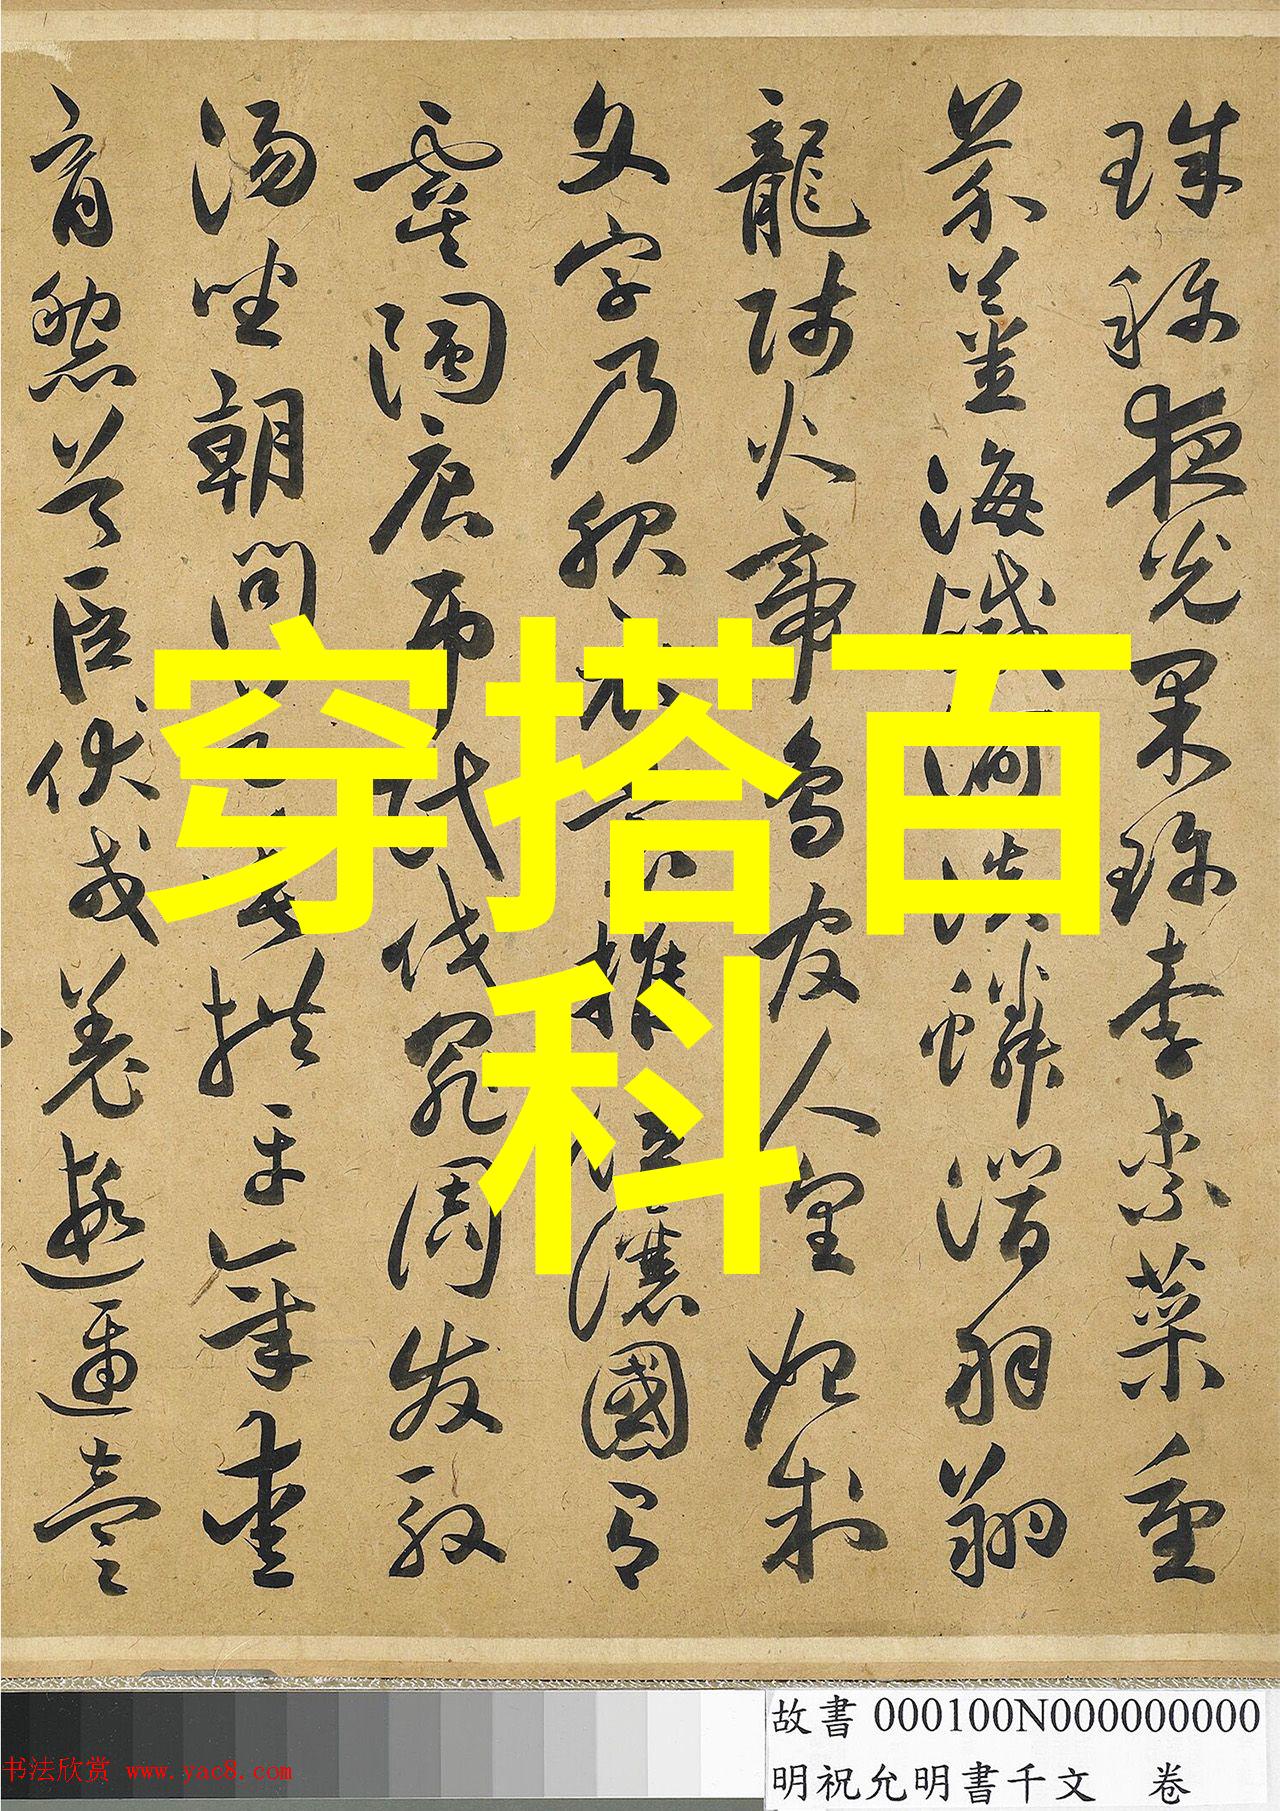 珠称夜光果珍李柰菜重
芥薑海鹹河淡鱗潛羽翔
龍師火帝鳥官人皇始制
文字乃服衣裳推位讓國有
虞陶唐弔民伐罪周发殷
湯坐朝問道垂拱平章愛
育黎首臣伏戎羌遐邇壹
穿搭百
科
故書 000100N000000000
明祝允明書千文 卷
书法欣赏 www.yac8.com